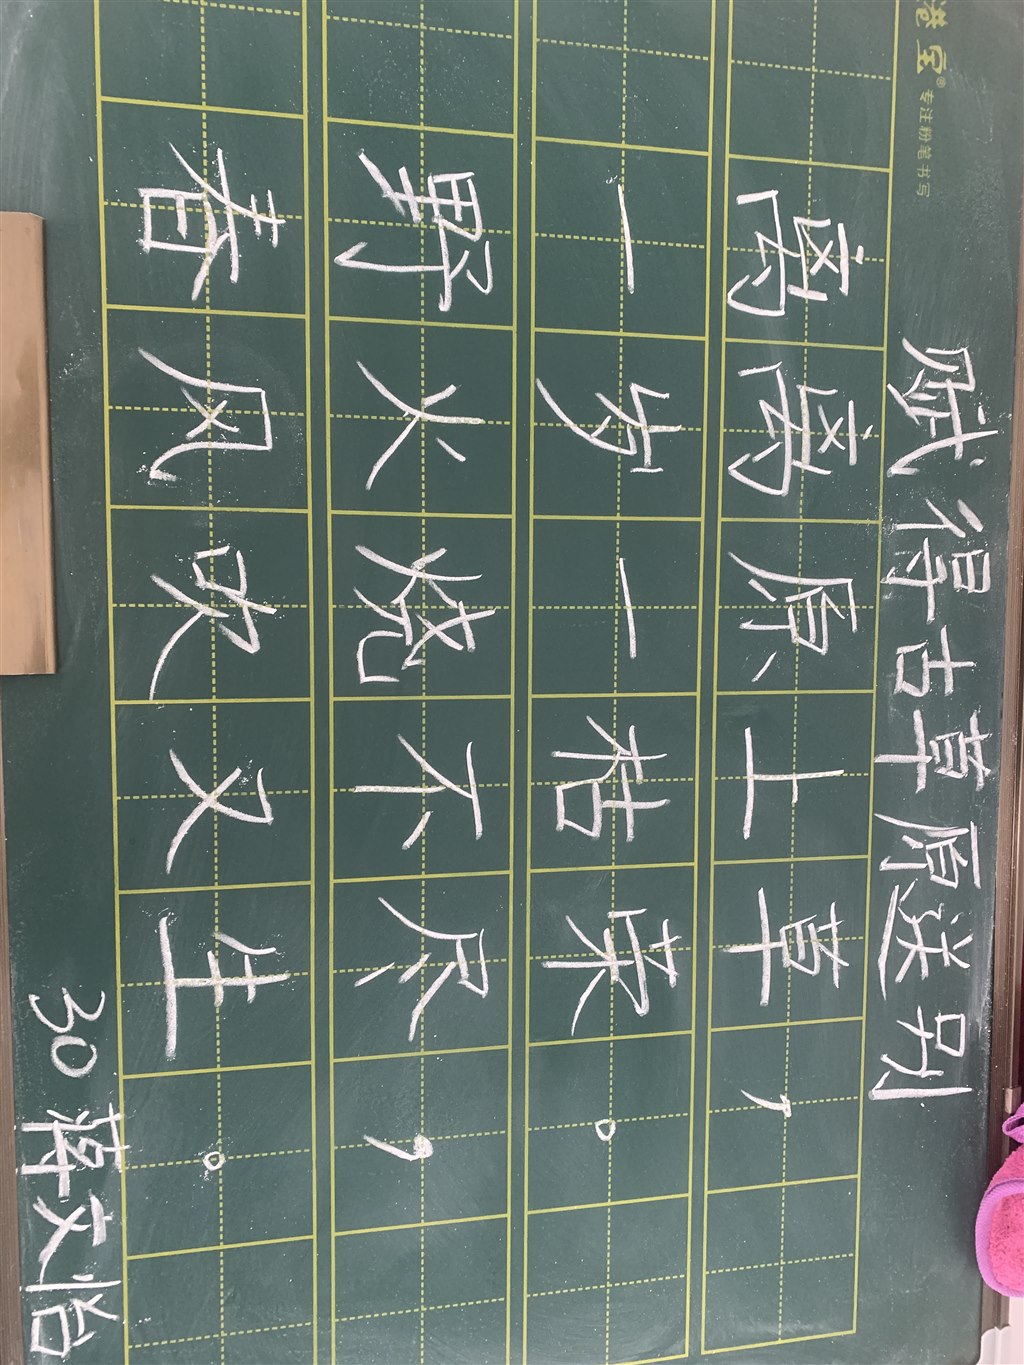 港宝® 专注粉笔书写
赋得古草原送别
离离原上草，
一岁一枯荣。
野火烧不尽，
春风吹又生。
30 蒋文怡